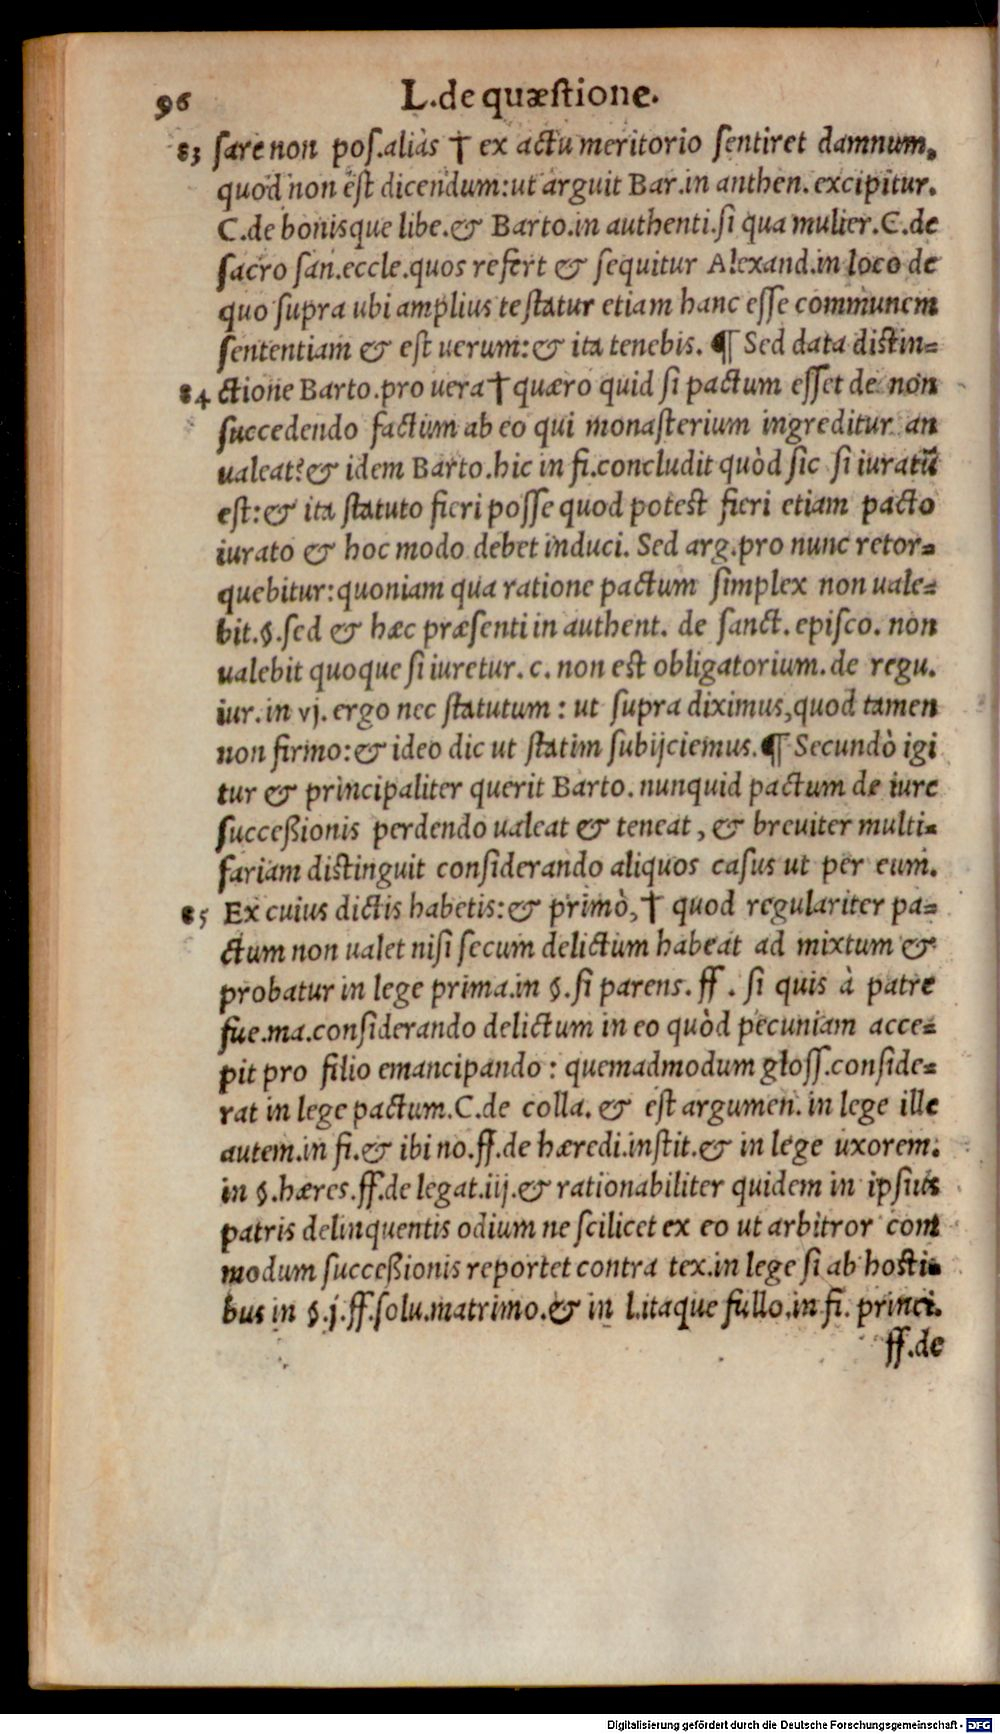 96 L. de quæstione.
83 sare non pos. aliàs † ex actu meritorio sentiret damnum,
quod non est dicendum: ut arguit Bar. in anthen. excipitur.
C. de bonisque libe. & Barto. in authenti. si qua mulier. C. de
sacro san. eccle. quos refert & sequitur Alexand. in loco de
quo supra ubi amplius testatur etiam hanc esse communem
sententiam & est uerum: & ita tenebis. ¶ Sed data distin=
84 ctione Barto. pro uera † quæro quid si pactum esset de non
succedendo factum ab eo qui monasterium ingreditur an
ualeat? & idem Barto. hic in fi. concludit quòd sic si iuratũ
est: & ita statuto fieri posse quod potest fieri etiam pacto
iurato & hoc modo debet induci. Sed arg. pro nunc retor=
quebitur: quoniam qua ratione pactum simplex non uale=
bit. §. sed & hæc præsenti in authent. de sanct. episco. non
ualebit quoque si iuretur. c. non est obligatorium. de regu.
iur. in vj. ergo nec statutum: ut supra diximus, quod tamen
non firmo: & ideo dic ut statim subijciemus. ¶ Secundò igi
tur & principaliter querit Barto. nunquid pactum de iure
succeßionis perdendo ualeat & teneat, & breuiter multi=
fariam distinguit considerando aliquos casus ut per eum.
85 Ex cuius dictis habetis: & primò, † quod regulariter pa=
ctum non ualet nisi secum delictum habeat ad mixtum &
probatur in lege prima. in §. si parens. ff. si quis à patre
fue. ma. considerando delictum in eo quòd pecuniam acce=
pit pro filio emancipando: quemadmodum gloss. conside=
rat in lege pactum. C. de colla. & est argumen. in lege ille
autem. in fi. & ibi no. ff. de hæredi. instit. & in lege uxorem.
in §. hæres. ff. de legat. iij. & rationabiliter quidem in ipsius
patris delinquentis odium ne scilicet ex eo ut arbitror com
modum succeßionis reportet contra tex. in lege si ab hosti=
bus in §. j. ff. solu. matrimo. & in l. itaque fullo. in fi. princi.
ff. de
Digitalisierung gefördert durch die Deutsche Forschungsgemeinschaft - DFG